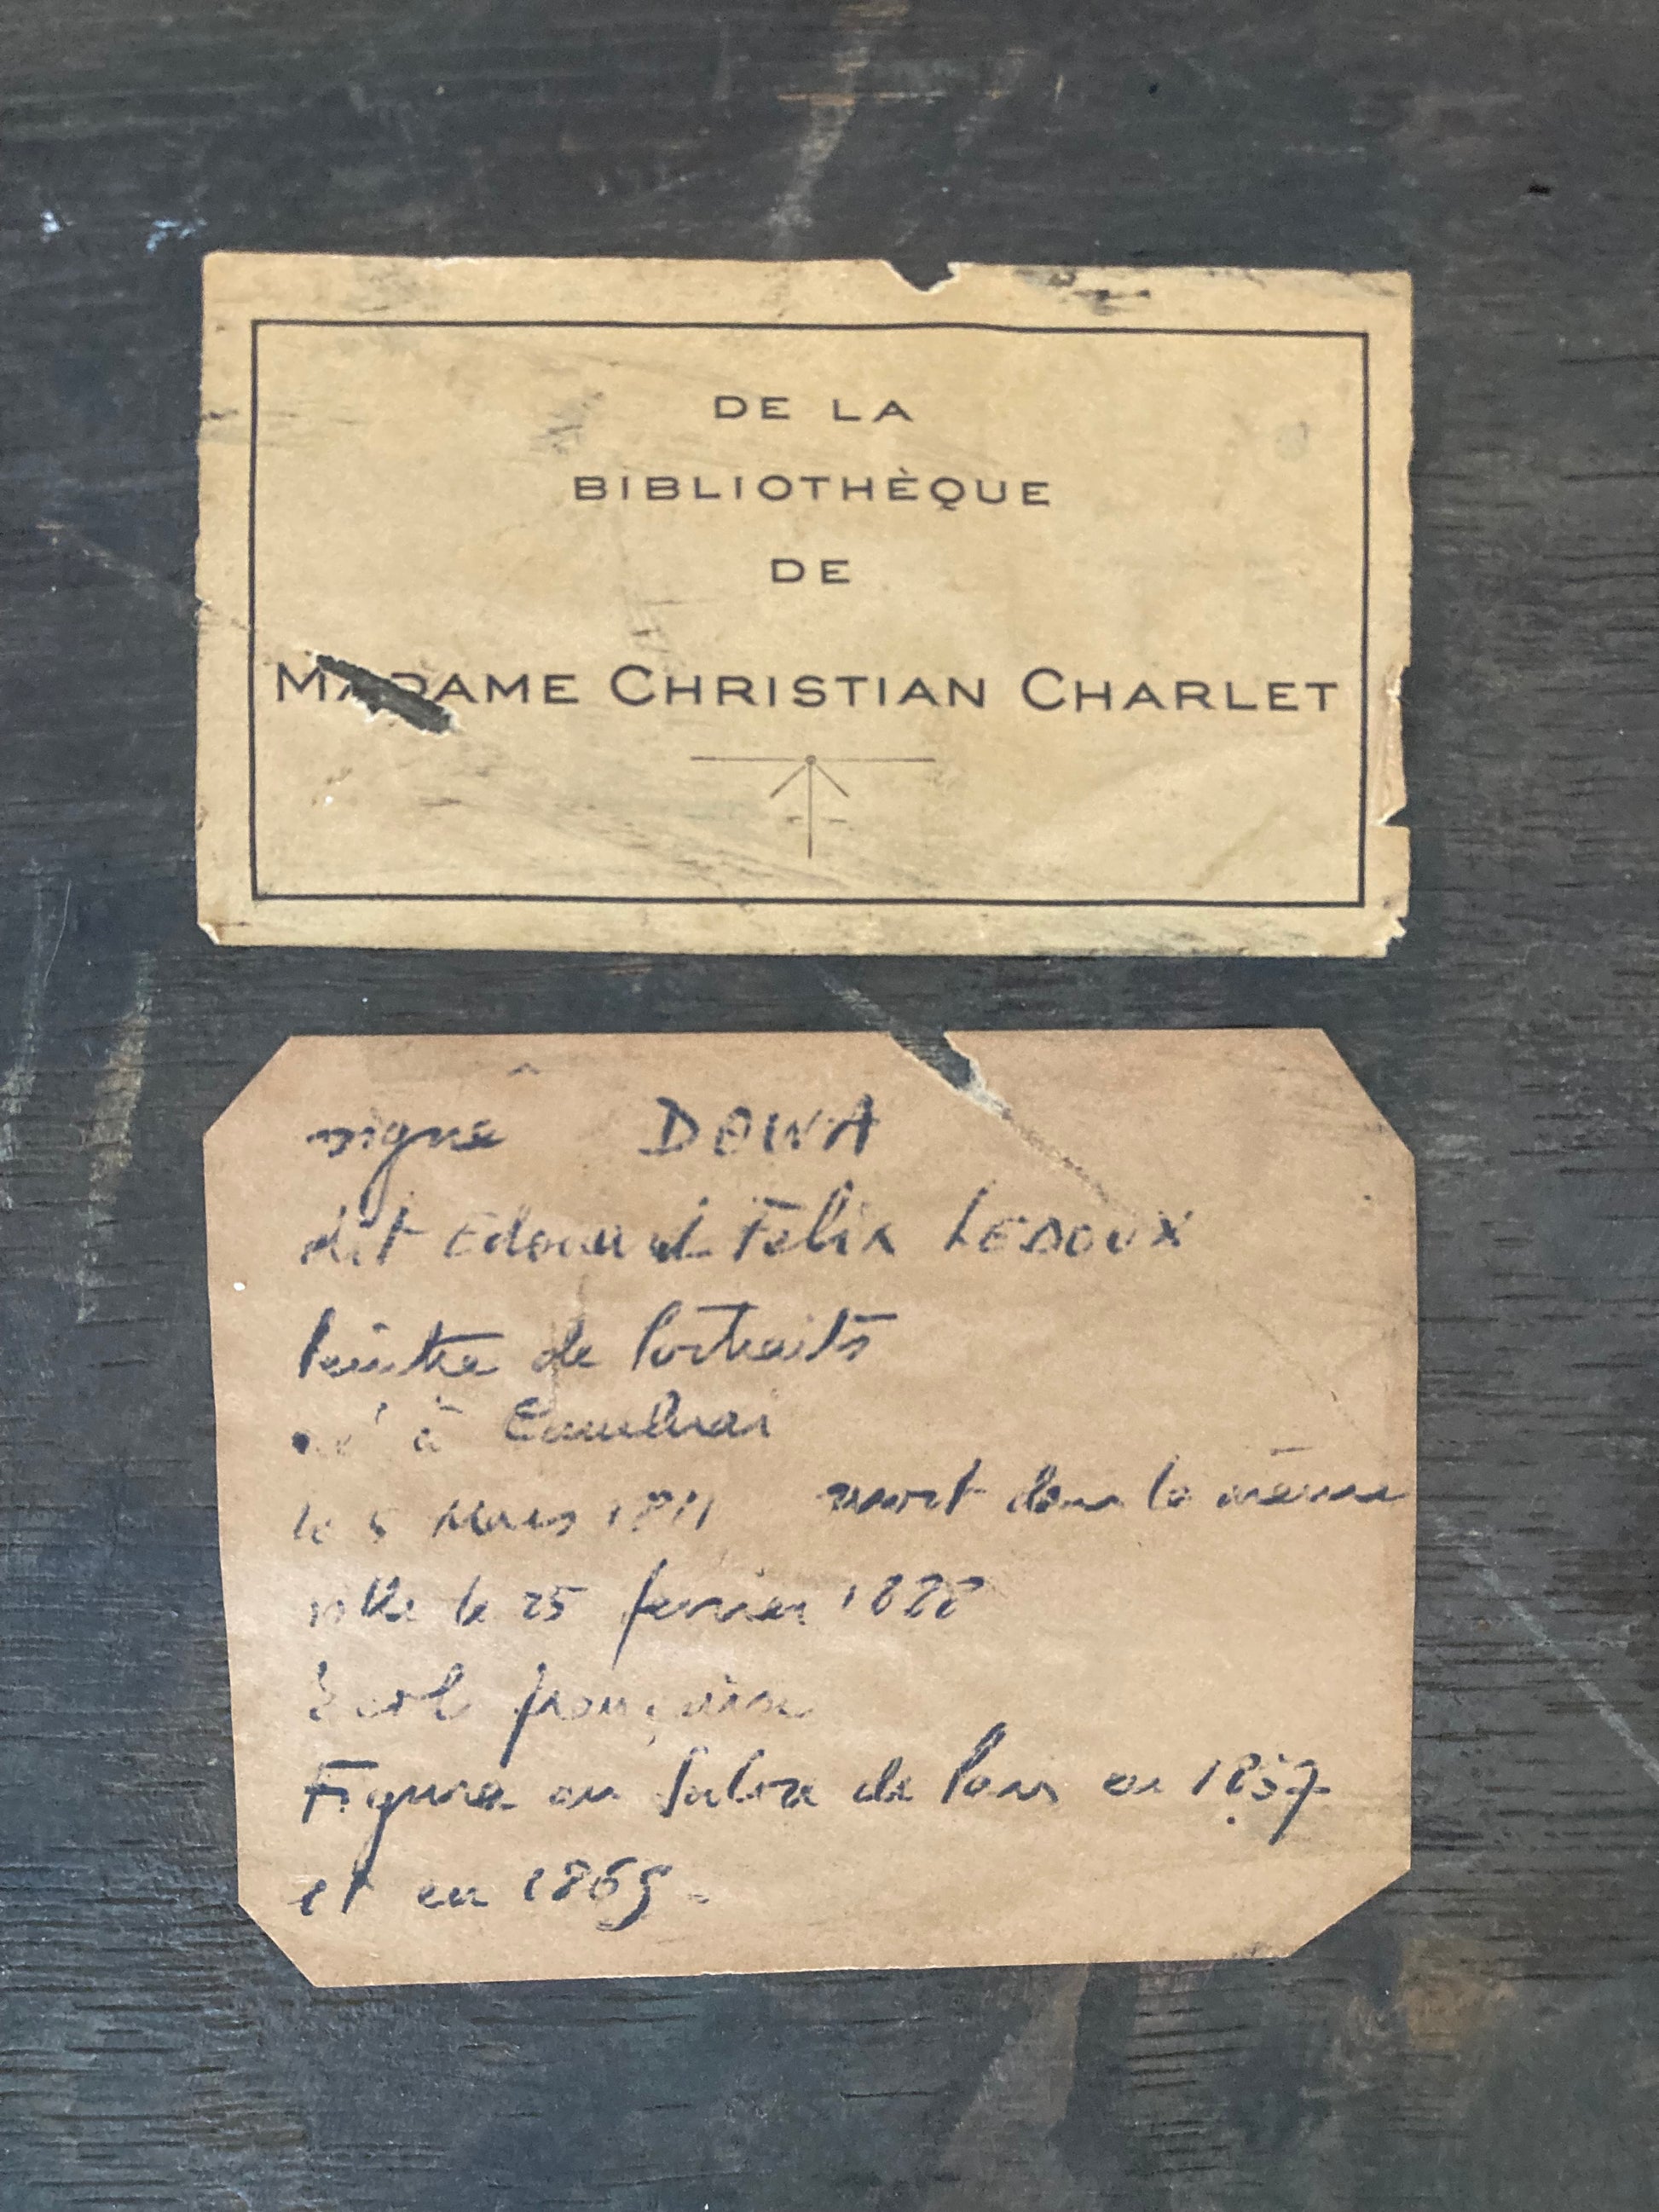 DE LA
BIBLIOTHÈQUE
DE
MADAME CHRISTIAN CHARLET
signé DOWA
dit Edouard Felix LEDOUX
Peintre de Portraits
né à Cambrai
le 5 Mars 1811 mort dans la même
ville le 25 fevrier
Ecole française
Figura au Salon de Paris en 1857
et en 1865.